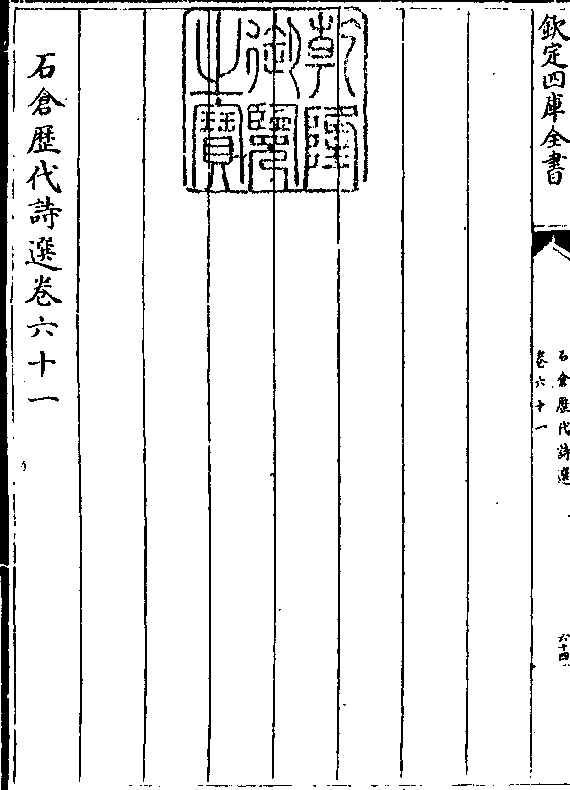 欽定四庫全書
石倉歷代詩選
卷六十一
六十四
乾隆
御覽
之寶
石倉歷代詩選卷六十一